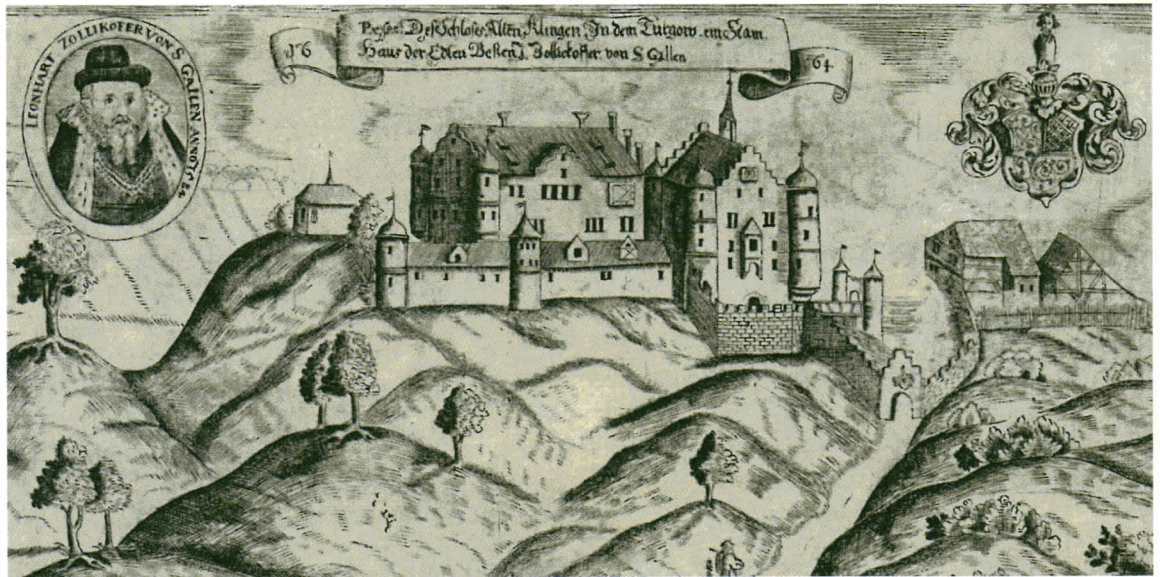 LEONHART ZOLLIKOFER VON S GALLEN ANNO
16
Deß Schloses Alten Klingen In dem Turgow ein Stam
Haus der Edlen Vesten Zollickoffer von S Gallen
64